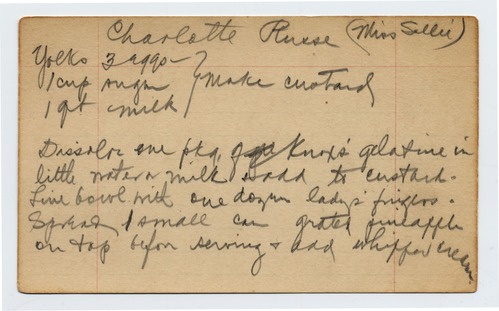 Charlotte Russe (Miss Sallie)
Yolks 3 eggs
1 cup sugar } make custard
1 qt milk
Dissolve one pkg. Knox's gelatine in
little water or milk & add to custard.
Line bowl with one dozen lady's fingers.
Spread 1 small can grated pineapple
on top before serving & add whipped cream.